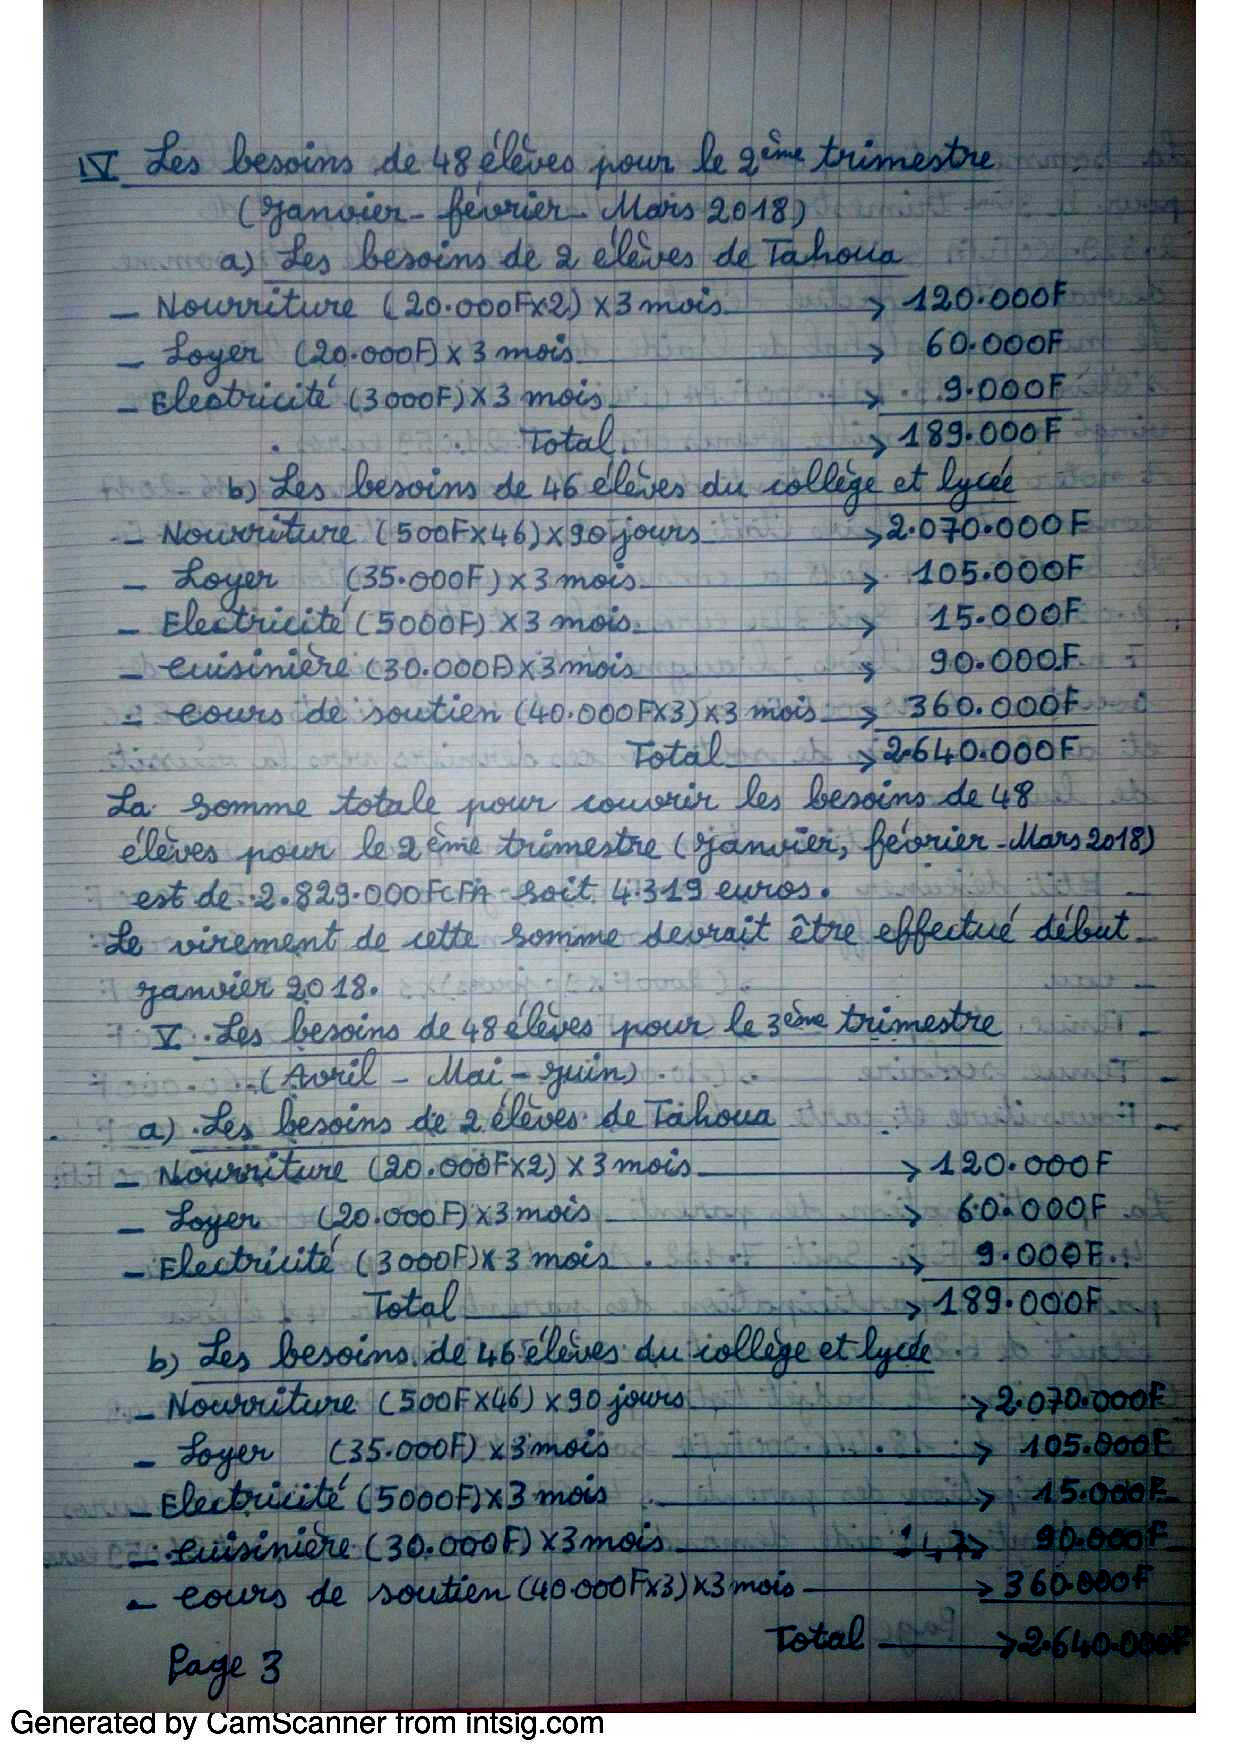 IV Les besoins de 48 élèves pour le 2ème trimestre
(Janvier - février - Mars 2018)
a) Les besoins de 2 élèves de Tahoua
- Nourriture (20.000F×2) × 3 mois → 120.000F
- Loyer (20.000F) × 3 mois → 60.000F
- Electricité (3000F) × 3 mois → 9.000F
Total → 189.000F
b) Les besoins de 46 élèves du collège et lycée
- Nourriture (500F×46) × 90 jours → 2.070.000F
- Loyer (35.000F) × 3 mois → 105.000F
- Electricité (5000F) × 3 mois → 15.000F
- cuisinière (30.000F) × 3 mois → 90.000F
- cours de soutien (40.000F×3) × 3 mois → 360.000F
Total → 2.640.000F
La somme totale pour couvrir les besoins de 48
élèves pour le 2ème trimestre (Janvier, février - Mars 2018)
est de 2.829.000FCFA soit 4.319 euros.
Le virement de cette somme devrait être effectué début
Janvier 2018.
V. Les besoins de 48 élèves pour le 3ème trimestre
(Avril - Mai - Juin)
a) Les besoins de 2 élèves de Tahoua
- Nourriture (20.000F×2) × 3 mois → 120.000F
- Loyer (20.000F) × 3 mois → 60.000F
- Electricité (3000F) × 3 mois → 9.000F
Total → 189.000F
b) Les besoins de 46 élèves du collège et lycée
- Nourriture (500F×46) × 90 jours → 2.070.000F
- Loyer (35.000F) × 3 mois → 105.000F
- Electricité (5000F) × 3 mois → 15.000F
- cuisinière (30.000F) × 3 mois → 90.000F
- cours de soutien (40.000F×3) × 3 mois → 360.000F
Total → 2.640.000F
Page 3
Generated by CamScanner from intsig.com